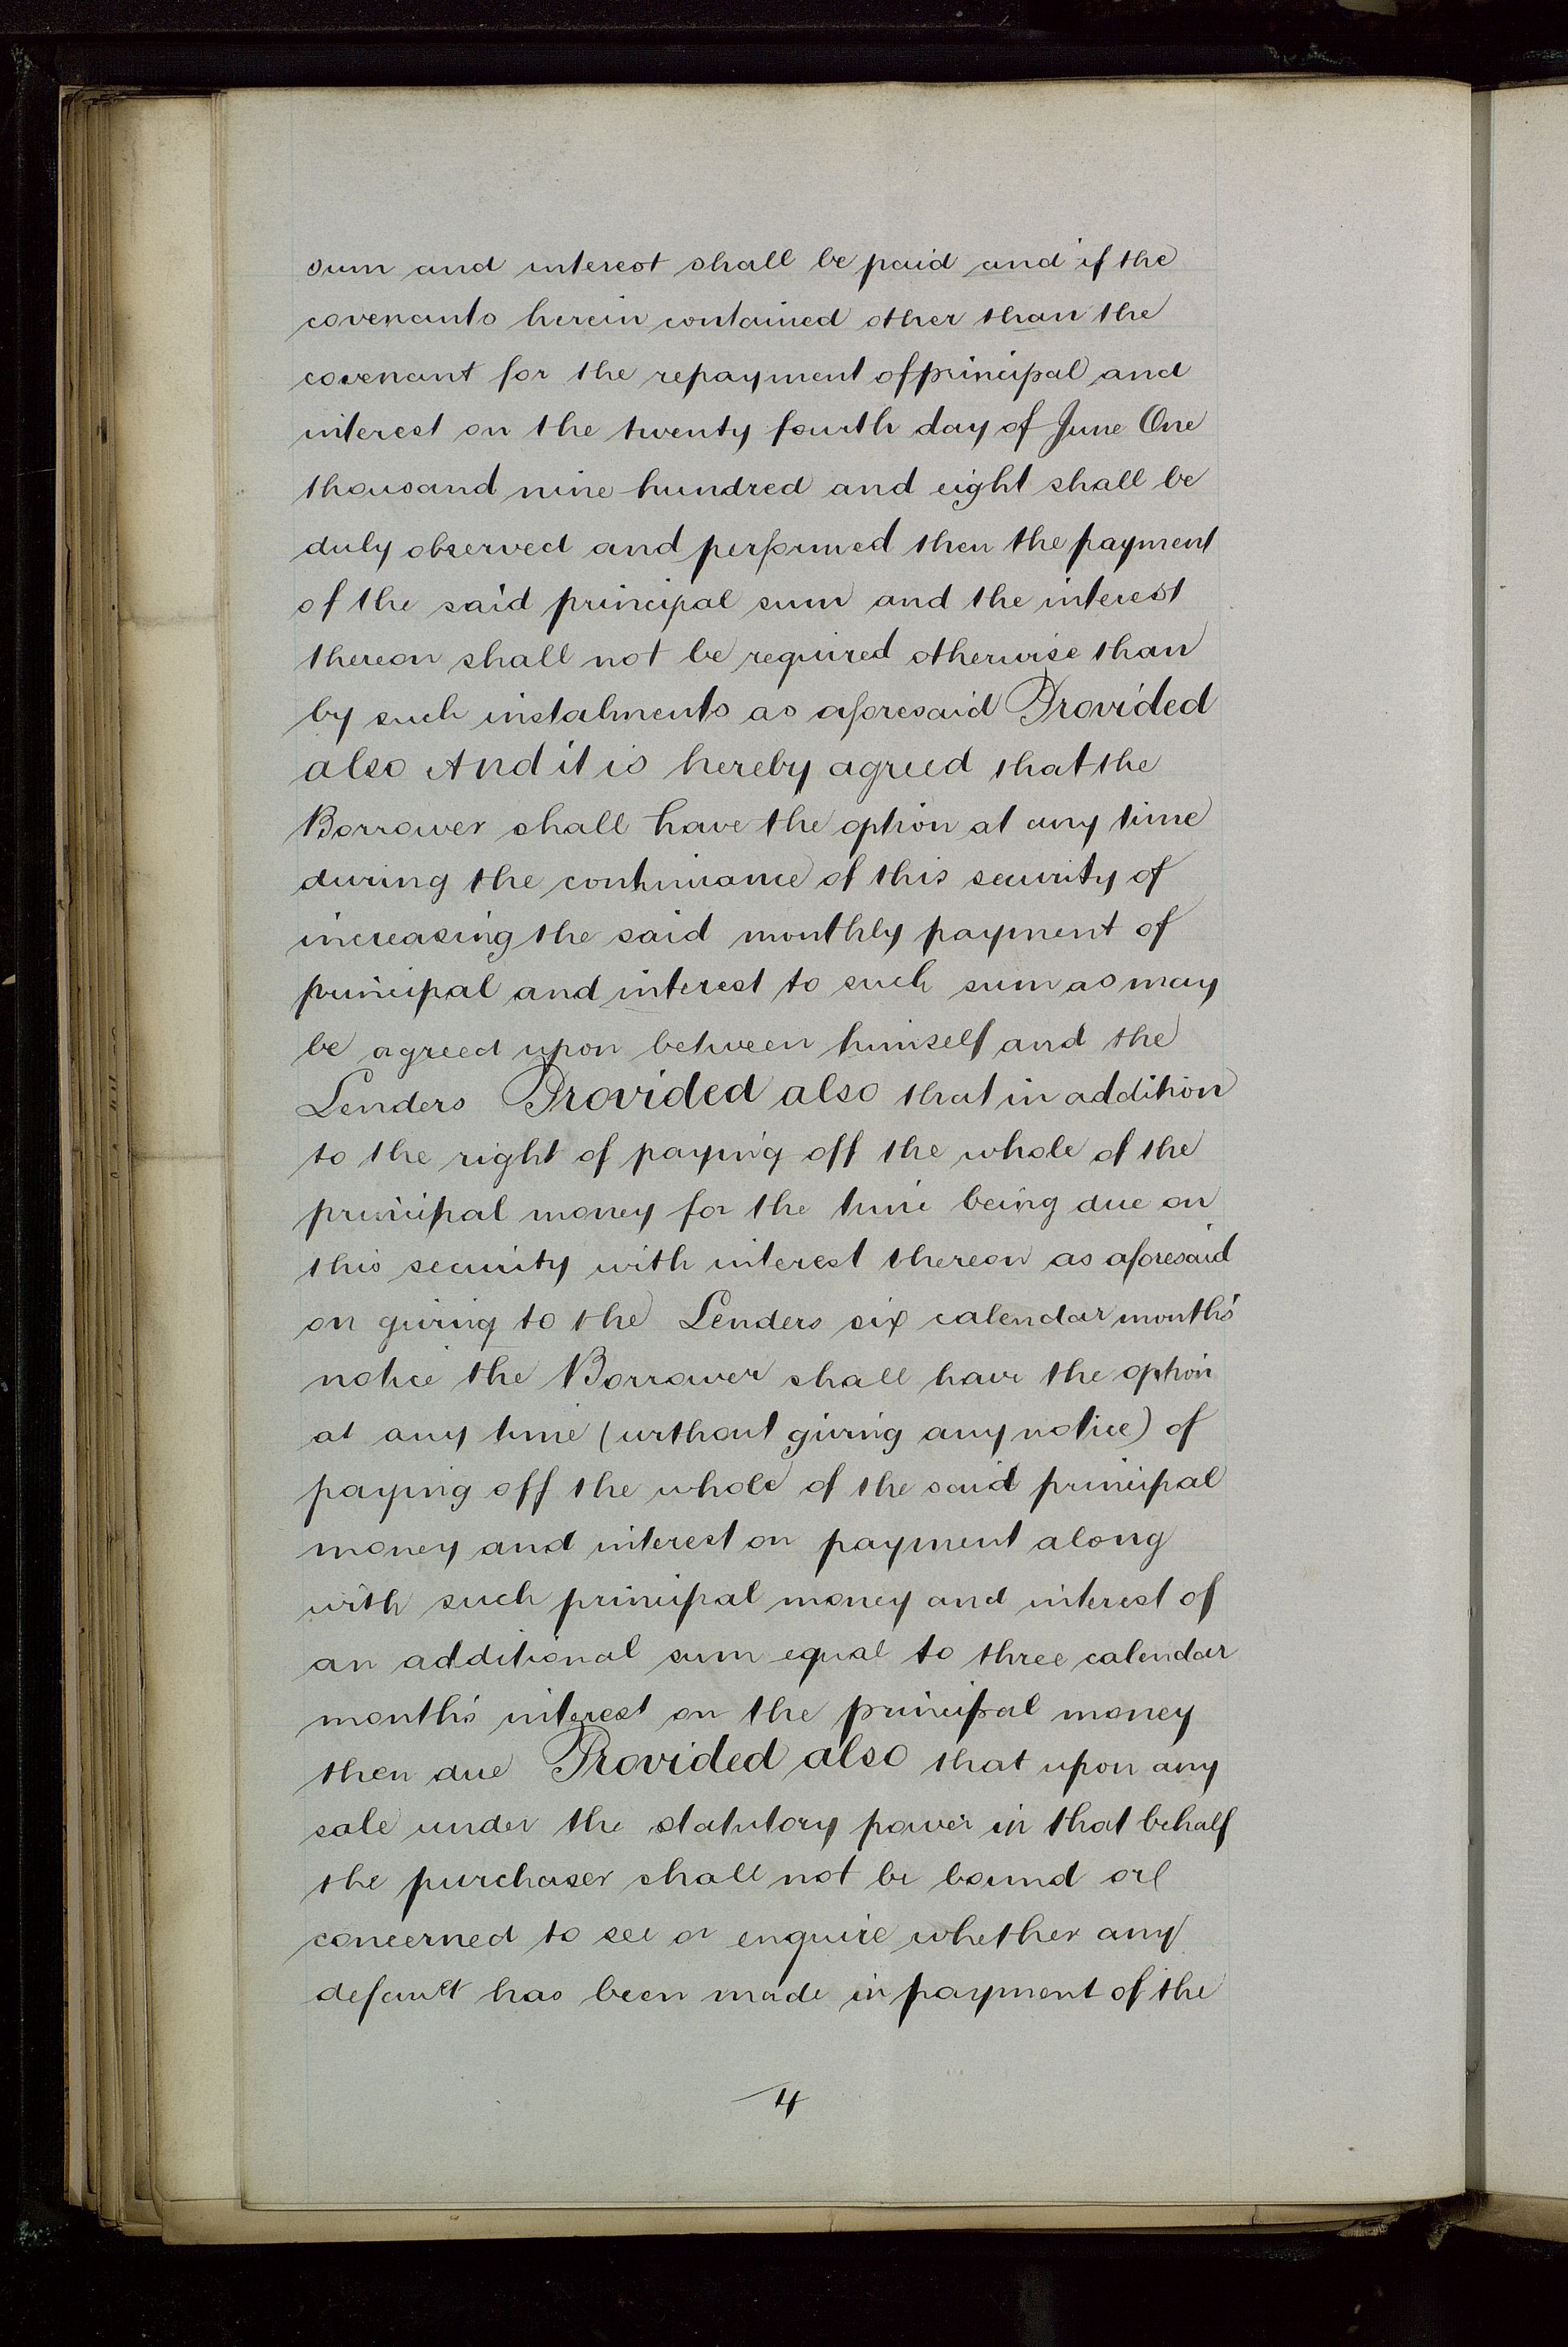 sum and interest shall be paid and if the
covenants herein contained other than the
covenant for the repayment of principal and
interest on the twenty fourth day of June One
thousand nine hundred and eight shall be
duly observed and performed then the payment
of the said principal sum and the interest
thereon shall not be required otherwise than
by such instalments as aforesaid Provided
also And it is hereby agreed that the
Borrower shall have the option at any time
during the continuance of this security of
increasing the said monthly payment of
principal and interest to such sum as may
be agreed upon between himself and the
Lenders Provided also that in addition
to the right of paying off the whole of the
principal money for the time being due on
this security with interest thereon as aforesaid
on giving to the Lenders six calendar months'
notice the Borrower shall have the option
at any time (without giving any notice) of
paying off the whole of the said principal
money and interest on payment along
with such principal money and interest of
an additional sum equal to three calendar
month's interest on the principal money
then due Provided also that upon any
sale under the statutory power in that behalf
the purchaser shall not be bound or
concerned to see or enquire whether any
default has been made in payment of the
4